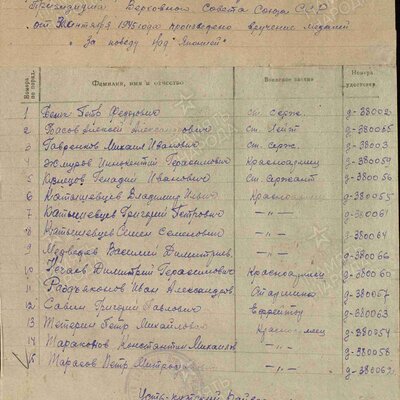 Президиума Верховного Совета Союза ССР
от 30 сентября 1945 года произведено вручение медалей
"За победу над Японией"
Номера по поряд.
Фамилия, имя и отчество
Воинское звание
Номера удостовер.
1 Петр Федорович ст. серж. д-38002
2 Басов Алексей Александрович ст. Лейт. д-380065
3 Гавренков Михаил Иванович ст. серж. д-38003
4 Жмуров Иннокентий Герасимович Красноармеец д-380059
5 Кузнецов Генадий Иванович ст. Сержант д-380056
6 Катышевцев Владимир Красноармеец д-380055
7 Катышевцев Григорий Петрович —"— д-380061
8 Катышевцев Семен Семенович —"— д-380064
9 Медведев Василий Димитриев. —"— д-380066
10 Нечаев Димитрий Герасимович Красноармеец д-380060
11 Раздьяконов Иван Александров Старшина д-380057
12 Савин Григорий Павлович Ефрейтор д-380063
13 Тетерин Петр Михайлович Красноармеец д-380054
14 Тараканов Константин Михайлов —"— д-380058
15 Тарасов Петр —"— д-380062